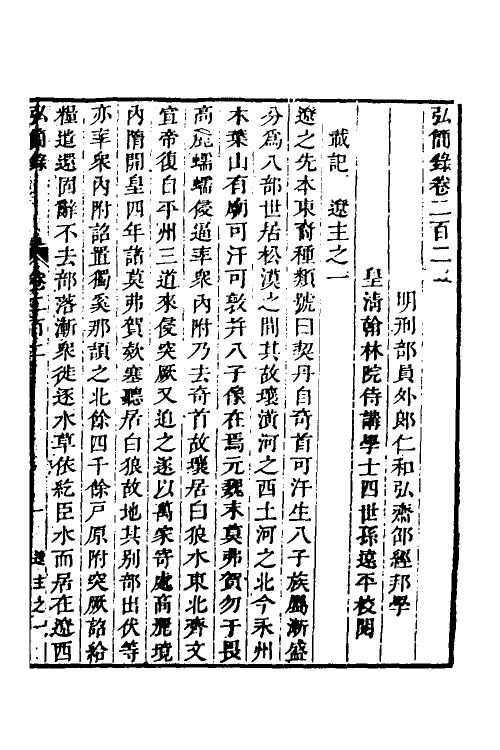 弘簡錄卷二百二
明刑部員外郎仁和弘齋邵經邦學
皇淸翰林院侍講學士四世孫遠平校閱
載記 遼主之一
遼之先本東裔種類號曰契丹自奇首可汗生八子族屬漸盛
分爲八部世居松漠之間其故壤潢河之西土河之北今永州
木葉山有廟可汗可敦幷八子像在焉元魏末莫弗賀勿于畏
高麗蠕蠕侵逼率衆內附乃去奇首故壤居白狼水東北齊文
宣帝復自平州三道來侵突厥又迫之遂以萬家寄處高麗境
內隋開皇四年諸莫弗賀欵塞聽居白狼故地其別部出伏等
亦率衆內附詔置獨奚那頡之北餘四千餘戶原附突厥詔給
糧遣還固辭不去部落漸衆徙逐水草依紇臣水而居在遼西
弘簡錄
卷二百二
一
遼主之一